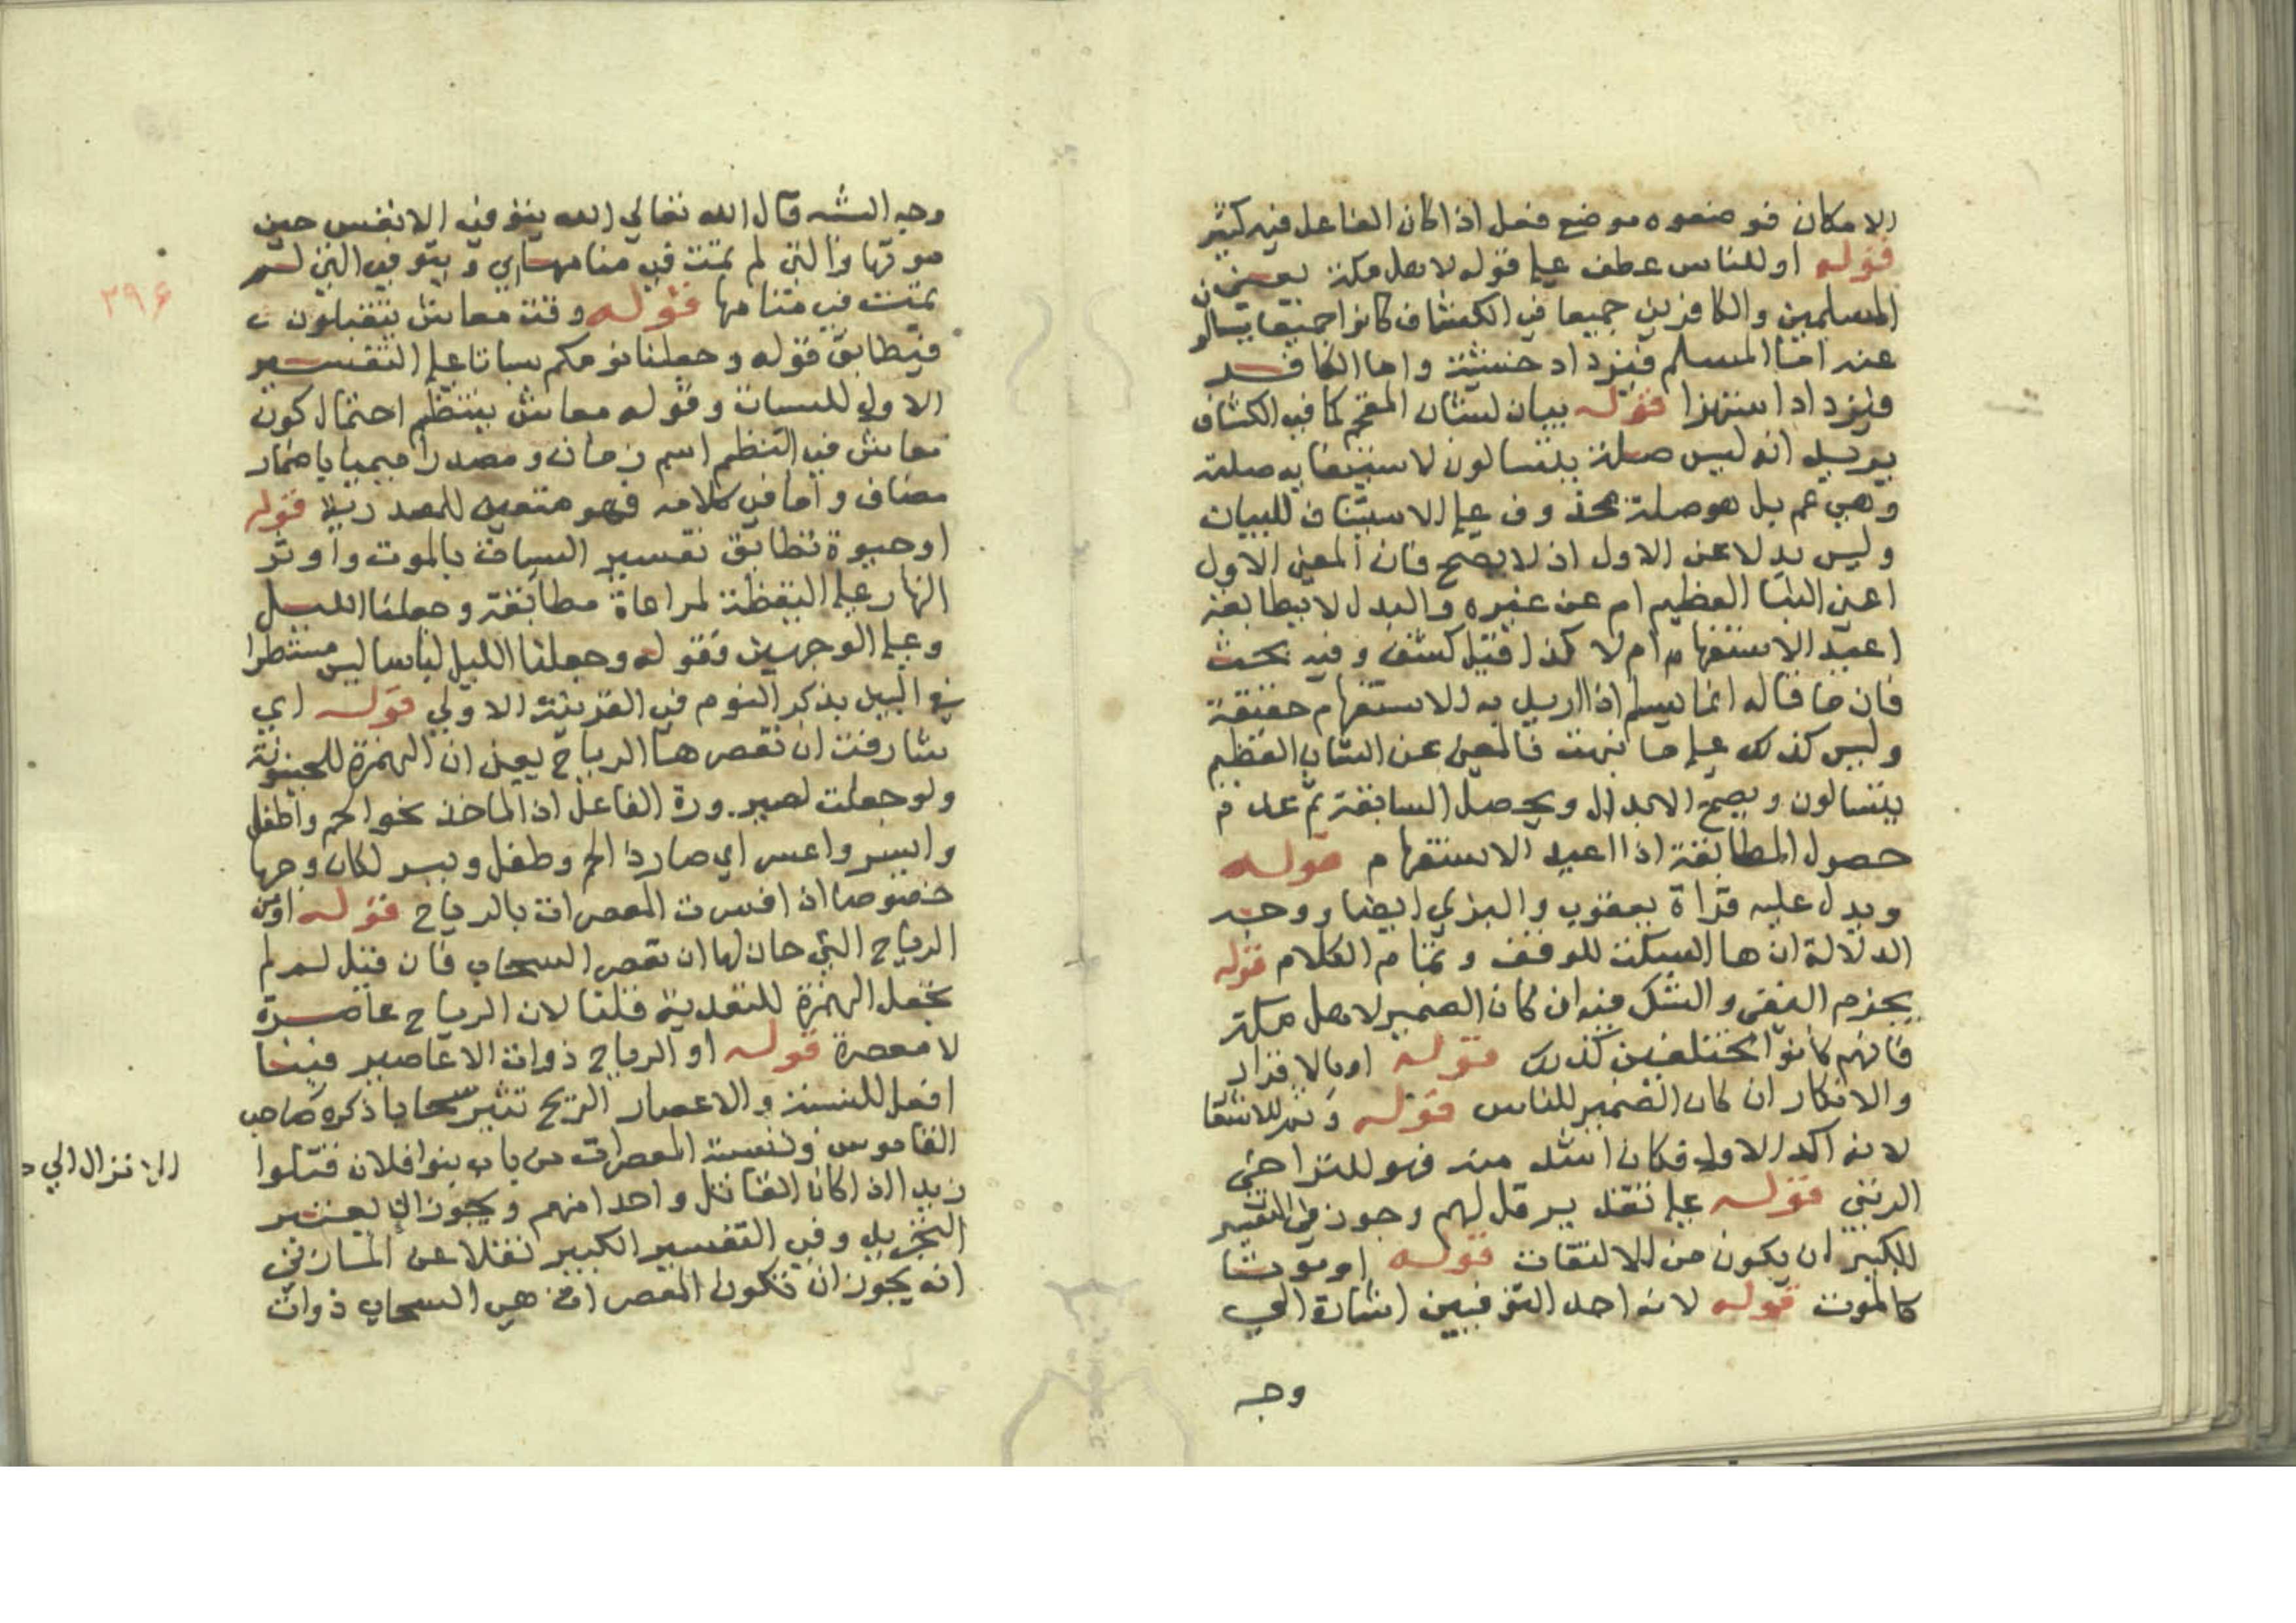 الامكان فوضعوه موضع فعل اذا كان الفاعل فيه كثير
قوله او للناس عطف على قوله لاهل مكة يعني ان
المسلمين والكافرين جميعا في الكشاف كانوا جميعا يتسالو
عنه اما المسلم فيزداد خشية واما الكافر
فليزداد استهزا قوله بيان لشان المفخم كما في الكشاف
يريد انه ليس صلة يتسالون لاستيفايه صلته
وهي عم بل هو صلة محذوف على الاستيناف للبيان
وليس بدلا عن الاول اذ لا يصح فان المعنى الاول
اعن النبا العظيم ام عن غيره والبدل لا يطابقه
اعيد الاستفهام ام لا كذا قيل كشف وفيه بحث
فان ما قاله انما يسلم اذا اريد به الاستفهام حقيقة
وليس كذلك على ما نبهت فالمعنى عن الشان العظيم
يتسالون ويصح الابدال ويحصل السابقة ثم عدم
حصول المطابقة اذا اعيد الاستفهام قوله
ويدل عليه قراة يعقوب والبزي ايضا ووجه
الدلالة ان ها السكت للوقف وتمام الكلام قوله
بجزم النفي والشك فيه ان كان الضمير لاهل مكة
فانهم كانوا مختلفين كذلك قوله او بالاقرار
والانكار ان كان الضمير للناس قوله وثم للاشعا
لانه اكد الاول فكان اشد منه فهو للتراخي
الرتبي قوله على تقدير قل لهم وجوز في التفسير
الكبير ان يكون من الالتفات قوله او موتا
كالموت قوله لانه احد التوفيين اشارة الى
وجه
وجه الشبه قال الله تعالى الله يتوفى الانفس حين
موتها والتي لم تمت في منامها اي ويتوفى التي لم
تمت في منامها قوله وقت معاش يتقبلون
فيطابق قوله وجعلنا نومكم سباتا على التفسير
الاول للسبات وقوله معاش ينتظم احتمال كون
معاش في النظم اسم زمان ومصدرا ميميا باضمار
مضاف واما في كلامه فهو متعين للمصدرية قوله
او حيوة تطابق تفسير السبات بالموت واوثر
النهار على اليقظة لمراعاة مطابقة وجعلنا الليل
وعلى الوجهين فقوله وجعلنا الليل لباسا ليس مستطردا
في البين بذكر النوم في القرينة الاولى قوله اي
شارفت ان تعصرها الرياح يعني ان الهمزة للحينونة
ولو جعلت لصيرورة الفاعل اذا الماخذ نحو الحم واطفل
وايسر واعسر اي صار ذا لحم وطفل ويسر لكان وجها
خصوصا اذا فسرت المعصرات بالرياح قوله او من
الرياح التي حان لها ان تعصر السحاب فان قيل لم لم
تجعل الهمزة للتعدية قلنا لان الرياح عاصرة
لا معصرة قوله او الرياح ذوات الاعاصير فبنا
افعل للنسبة والاعصار الريح تثير سحابا ذكره صاحب
القاموس ونسبة المعصرات من باب بنوا فلان قتلوا
زيدا اذا كان القاتل واحدا منهم ويجوز ان يعتبر
التجريد وفي التفسير الكبير نقلا عن المازني
انه يجوز ان تكون المعصرات هي السحاب ذوات
٢٩٤
الانزال الي